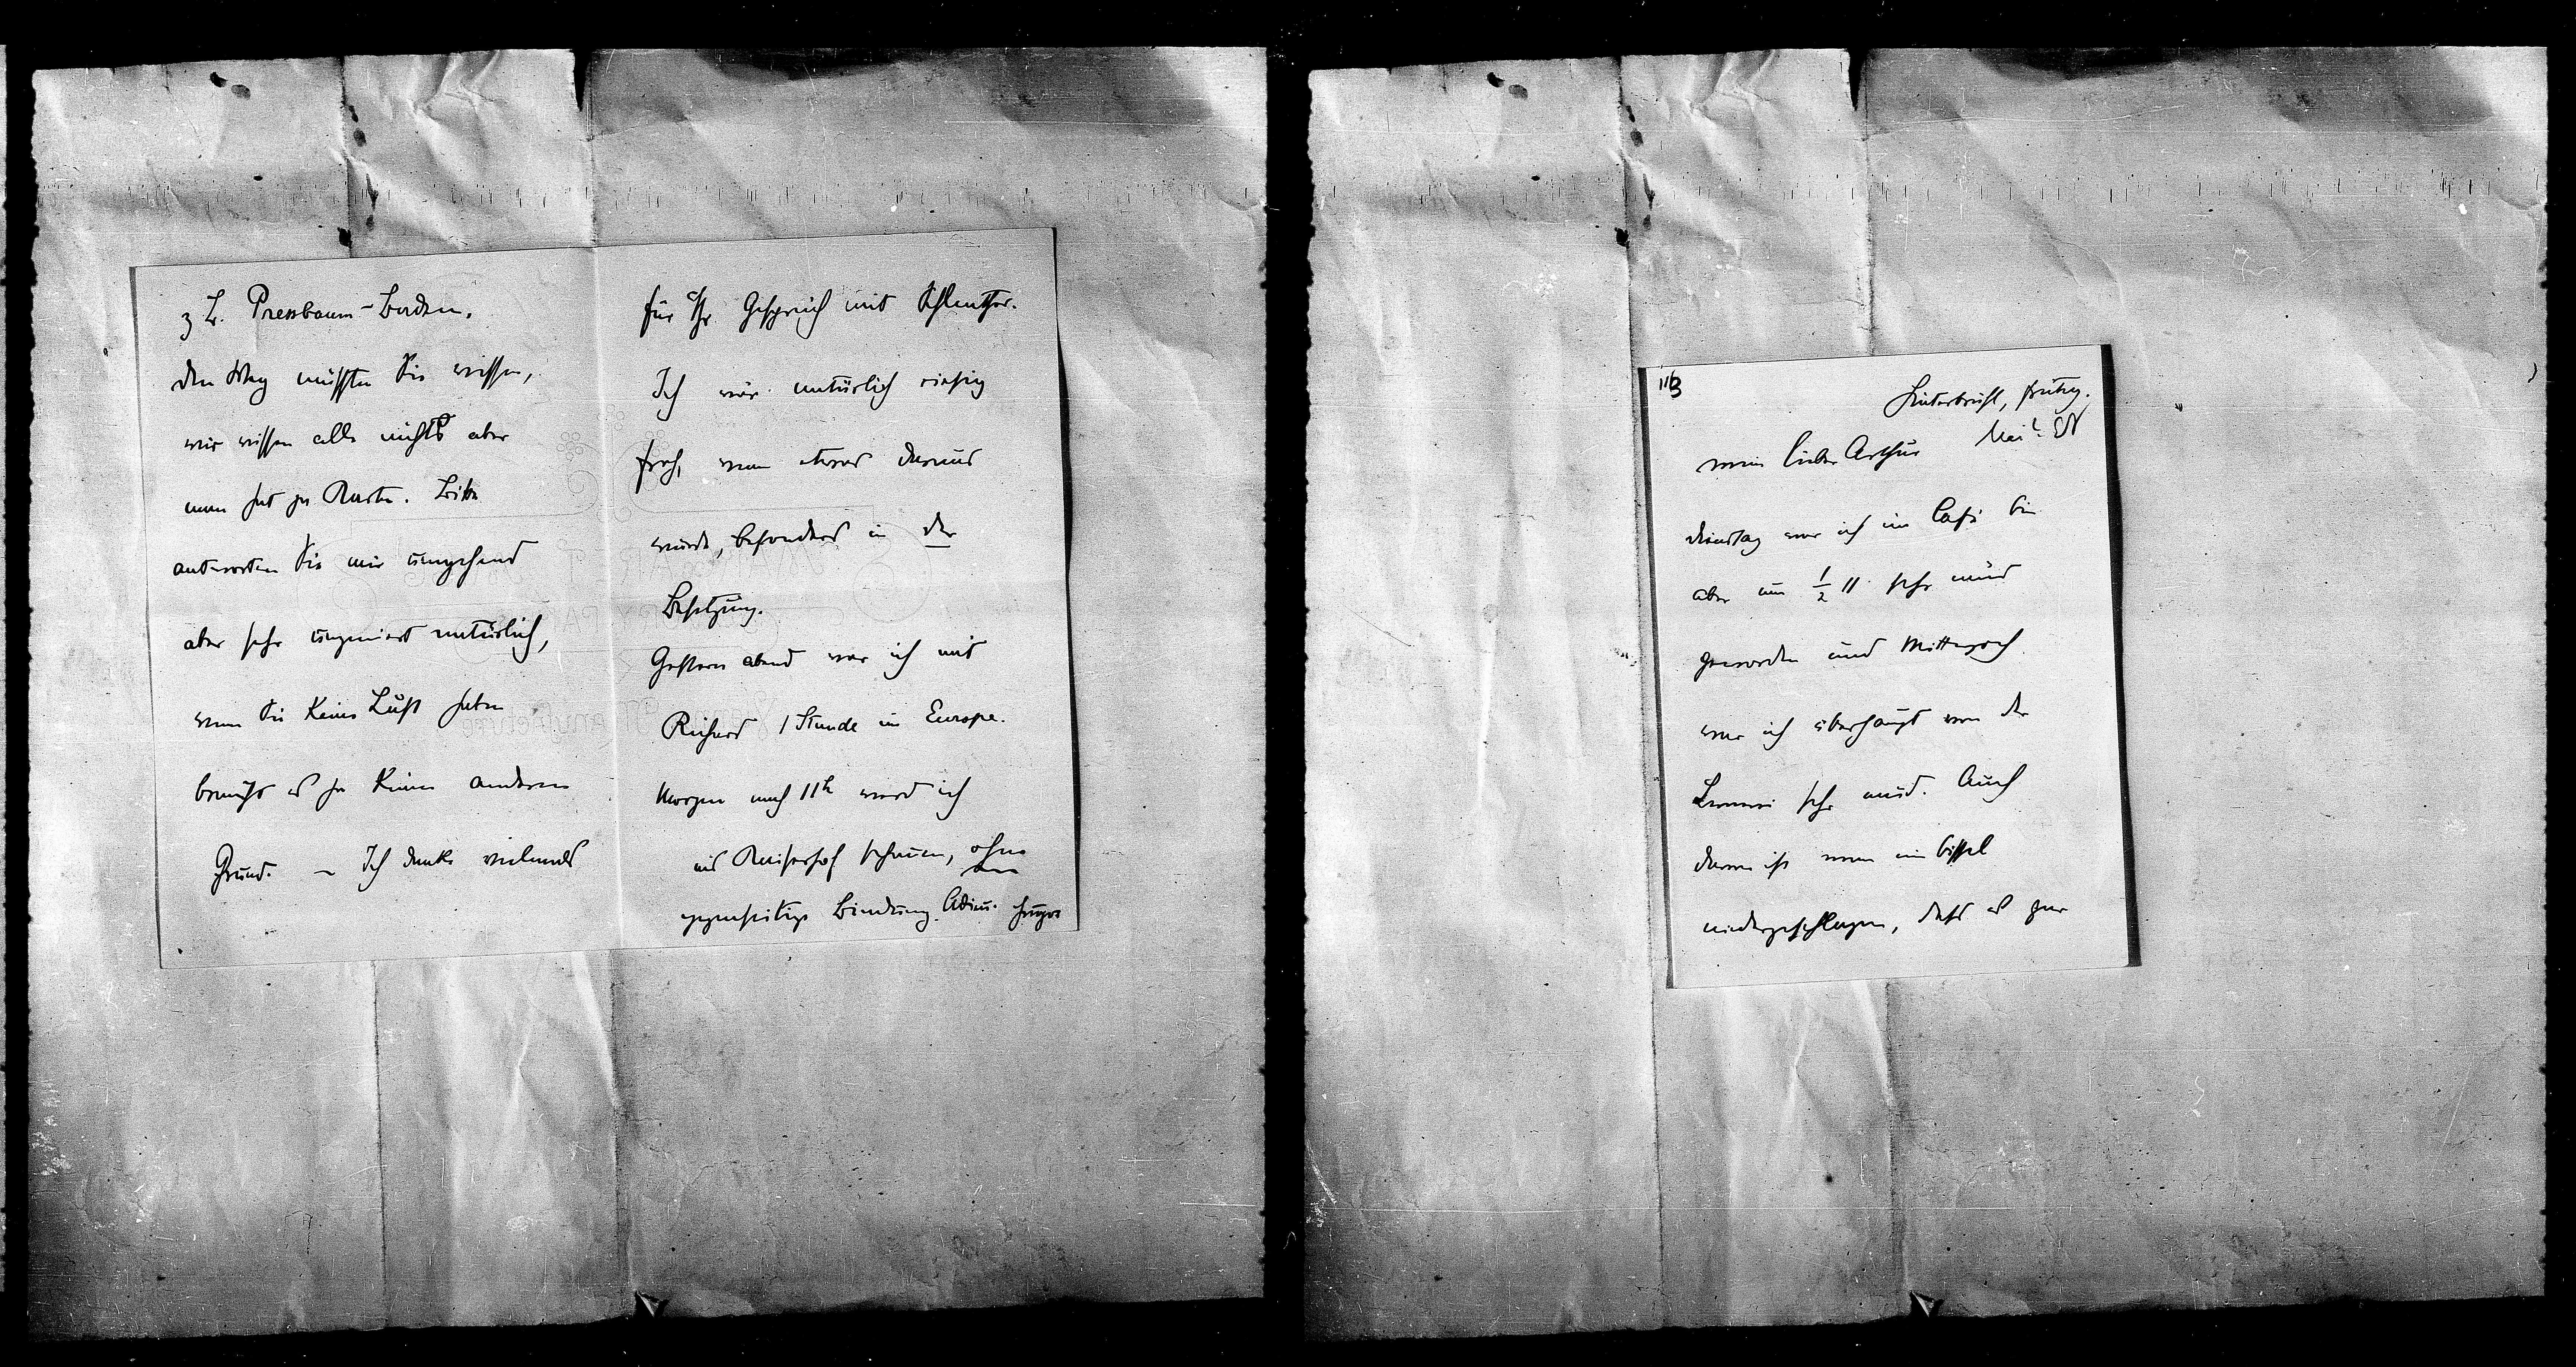 z B. Pressbaum-Baden.
den Weg müssten Sie wissen,
wir wissen alle nichts aber
man hat ja Karten. Bitte
antworten Sie mir umgehend
aber sehr ungeniert natürlich,
wenn Sie keine Lust haben
braucht es ja keinen anderen
Grund. – Ich danke vielmals
für Ihr Gespräch mit Schlenther.
Ich wär natürlich riesig
froh, wenn etwas daraus
würde, besonders in der
Besetzung.
Gestern abend war ich mit
Richard 1 Stunde im Europe.
Morgen nach 11h werd ich
ins Kaiserhof schauen, ohne
gegenseitige Bindung. Adieu. Hugo
113
Hinterbrühl, freitag.
Mai
mein lieber Arthur
dienstag war ich im Café bin
aber um ½ 11 sehr müd
geworden und Mittwoch
war ich überhaupt von der
sehr müd. Auch
darum ist man ein bissel
niedergeschlagen, dass es gar